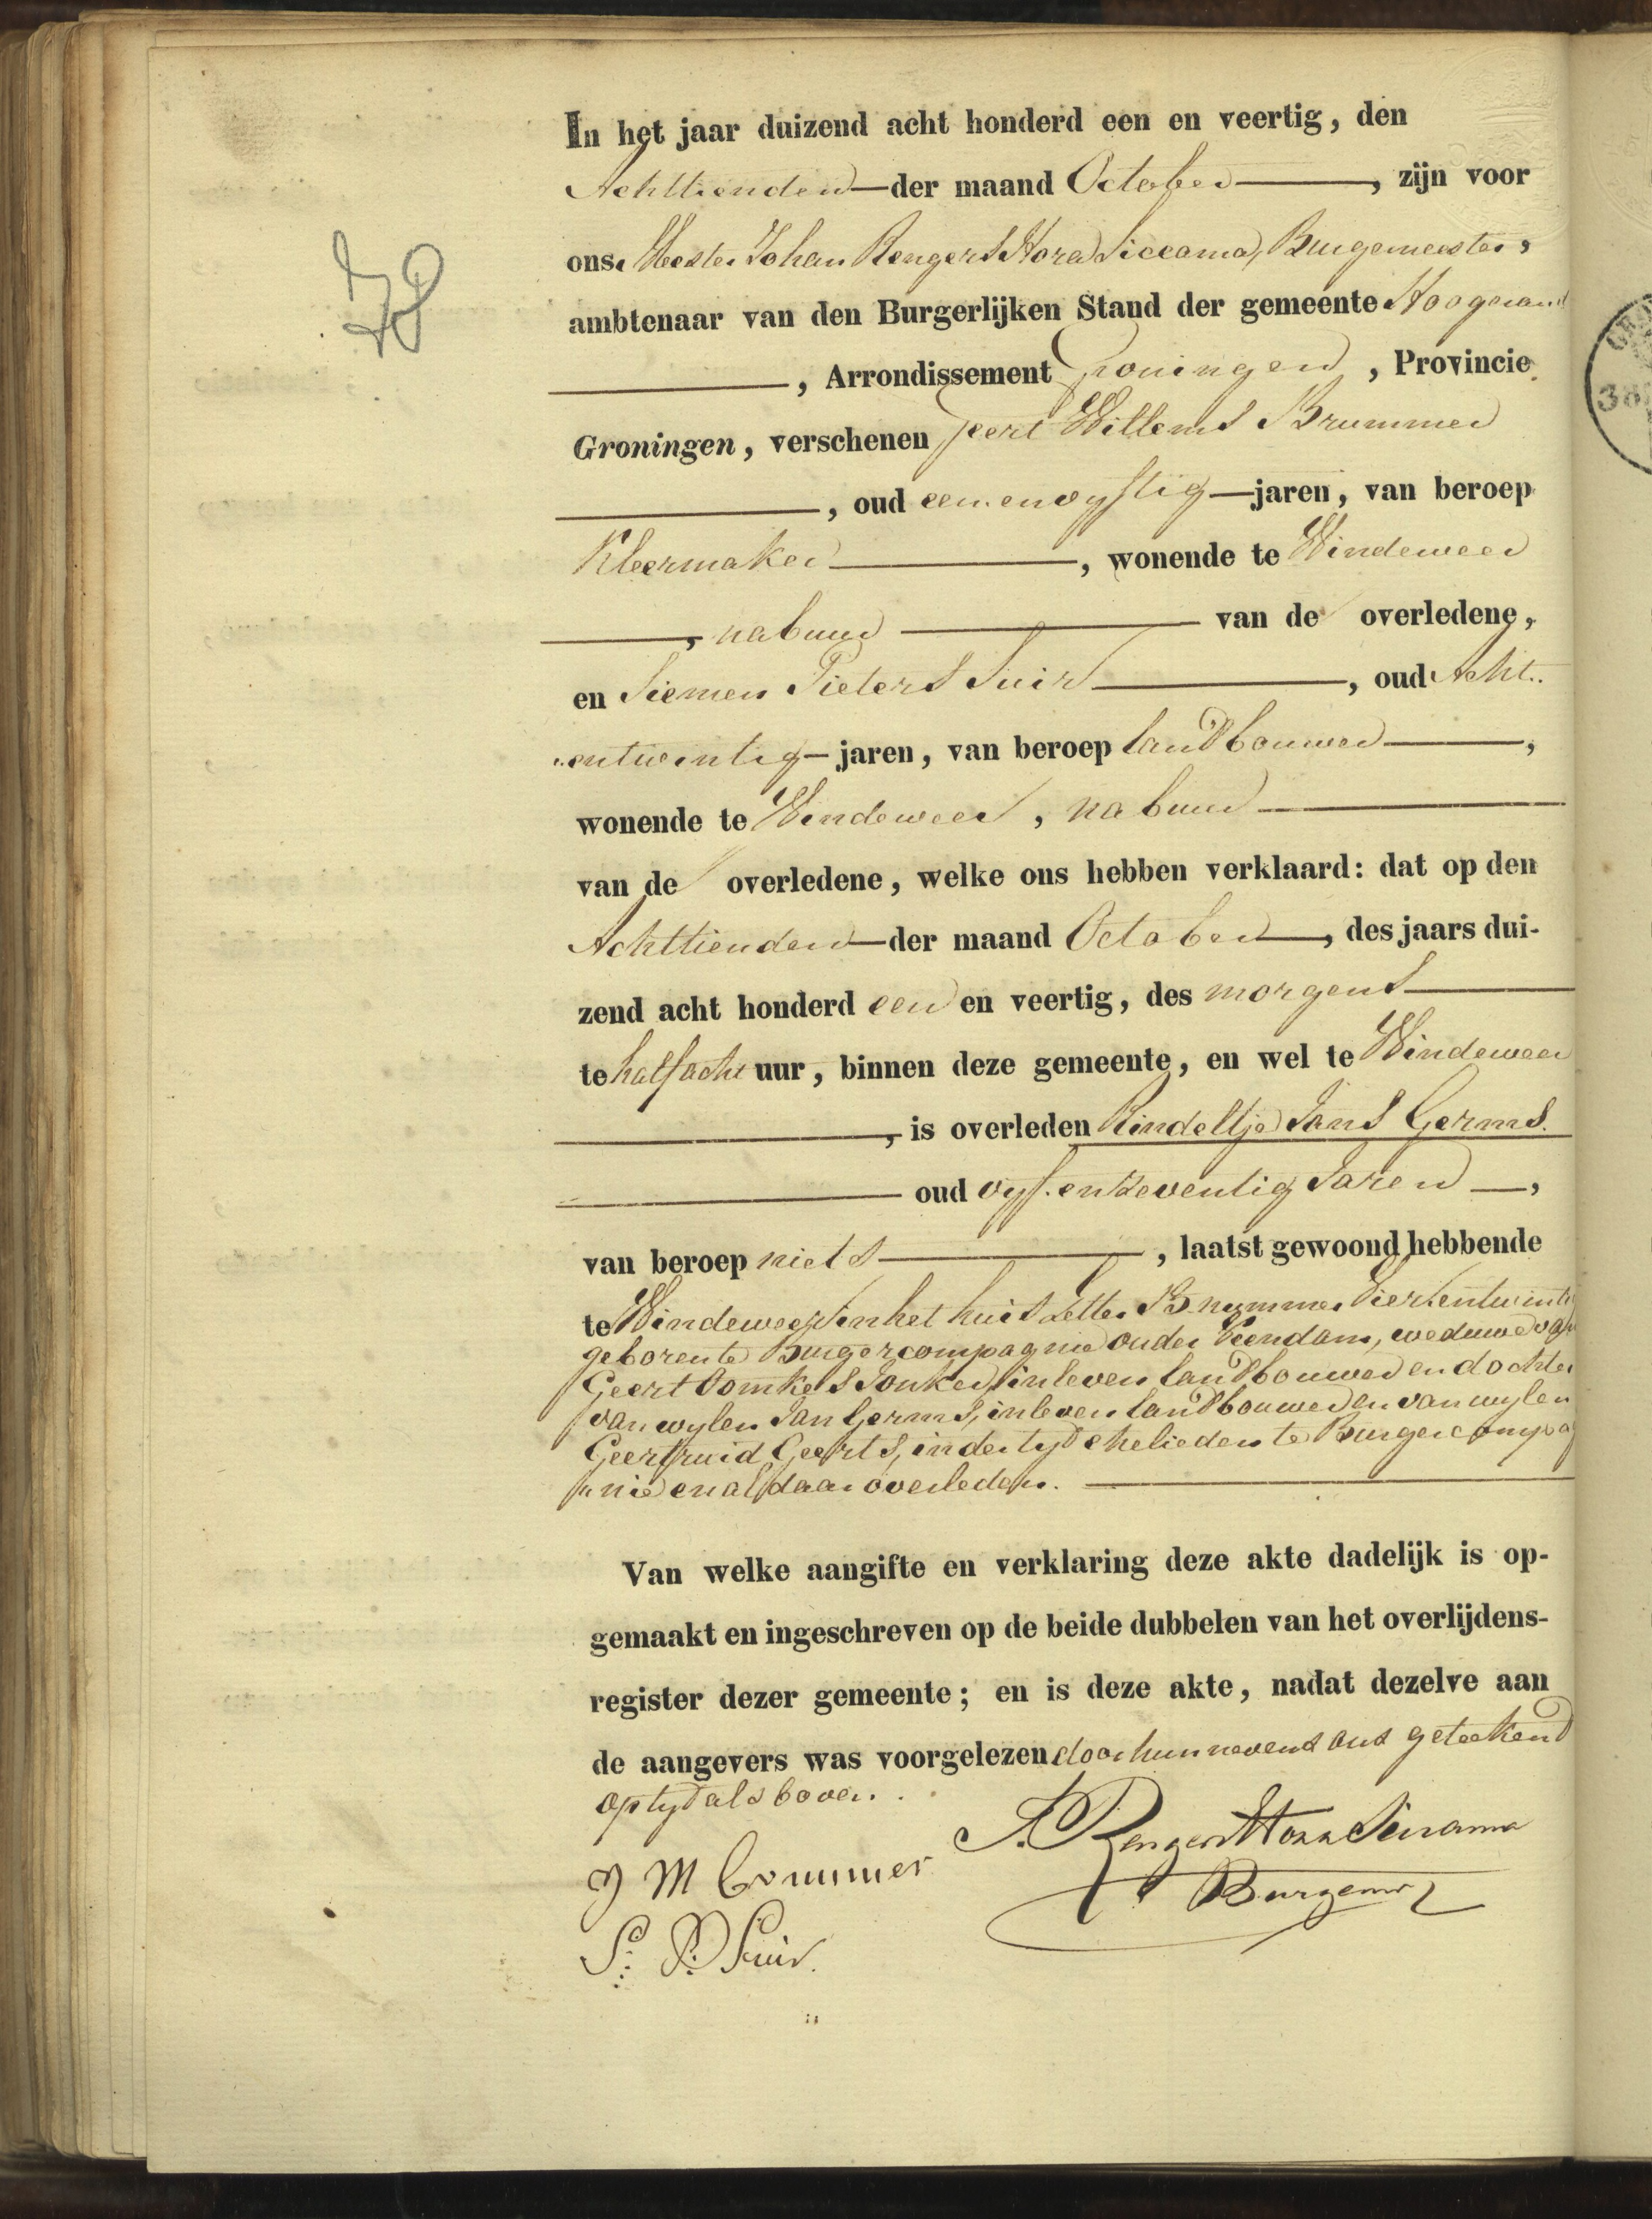 In het jaar duizend acht honderd een en veertig, den
Achttienden der maand October, zijn voor
ons Meester Johan Rengers Hora Siccama, Burgemeester,
ambtenaar van den Burgerlijken Stand der gemeente Hoogezand
, Arrondissement Groningen, Provincie
Groningen, verschenen Geert Willems Brummer
, oud eenenvyftig jaren, van beroep
Kleermaker, wonende te Windeweer
, nabuur van de overledene,
en Siemen Pieters Suir, oud Acht
entwintig jaren, van beroep landbouwer,
wonende te Windeweer, nabuur
van de overledene, welke ons hebben verklaard: dat op den
Achttienden der maand October, des jaars dui-
zend acht honderd een en veertig, des morgens
te half acht uur, binnen deze gemeente, en wel te Windeweer
, is overleden Rindeltje Jans Germs.
oud vyfenzeventig Jaren,
van beroep niets, laatst gewoond hebbende
te Windeweer in het huis Letter B nummer Vierentwintig
geboren te Burgercompagnie onder Veendam, weduwe van
Geert Oomkes Jonker, in leven landbouwer en dochter
van wylen Jan Germs, in leven landbouwer en van wylen
Geertruid Geerts, in der tyd ehelieden te Burgercompag
nie en aldaar overleden.
Van welke aangifte en verklaring deze akte dadelijk is op-
gemaakt en ingeschreven op de beide dubbelen van het overlijdens-
register dezer gemeente; en is deze akte, nadat dezelve aan
de aangevers was voorgelezen door hun nevens ons geteekend
op tyd als boven.
J. Rengers Hora Siccama
Burgemr
Brummer
S. P. Suir.